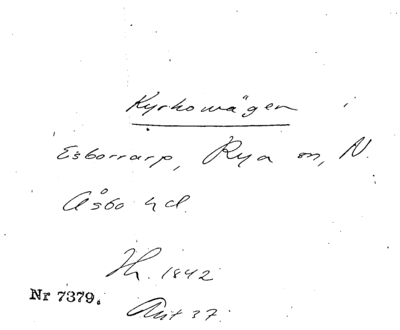 Kyrkowägen
Esborrarp, Rya sn, N.
Åsbo hd.
Th. 1842
Nr 7379.
Akt 37.